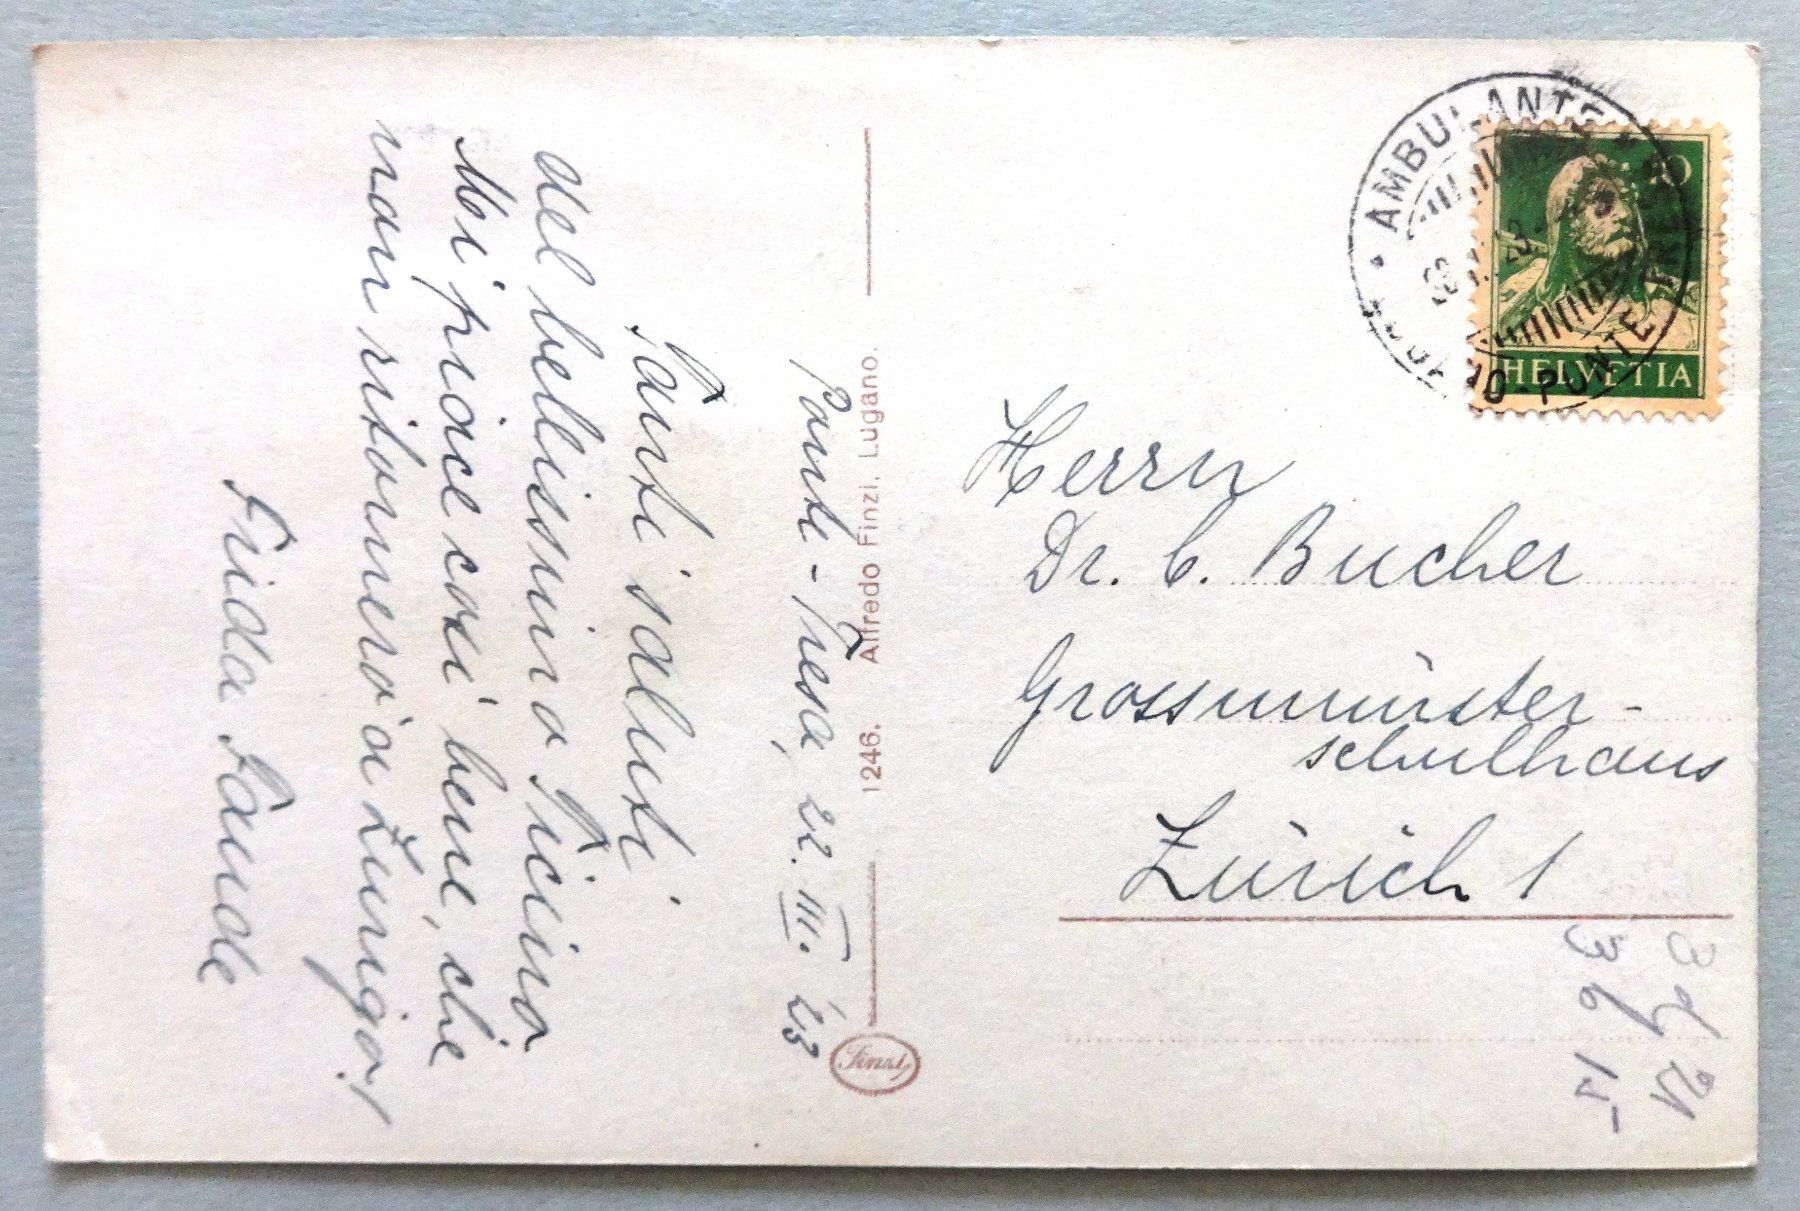 Ponte-Tresa, 22. III. 23
Tanti saluti
del bellissimo Ticino.
Mi piace cosi bene, che
non ritornero a Zurigo!
Frida
1246. Alfredo Finzi, Lugano.
Finzi
AMBULANTE
LUGANO-PONTE TRESA
10
HELVETIA
Herrn
Dr. C. Bucher
Grossmünster-
schulhaus
Zürich 1